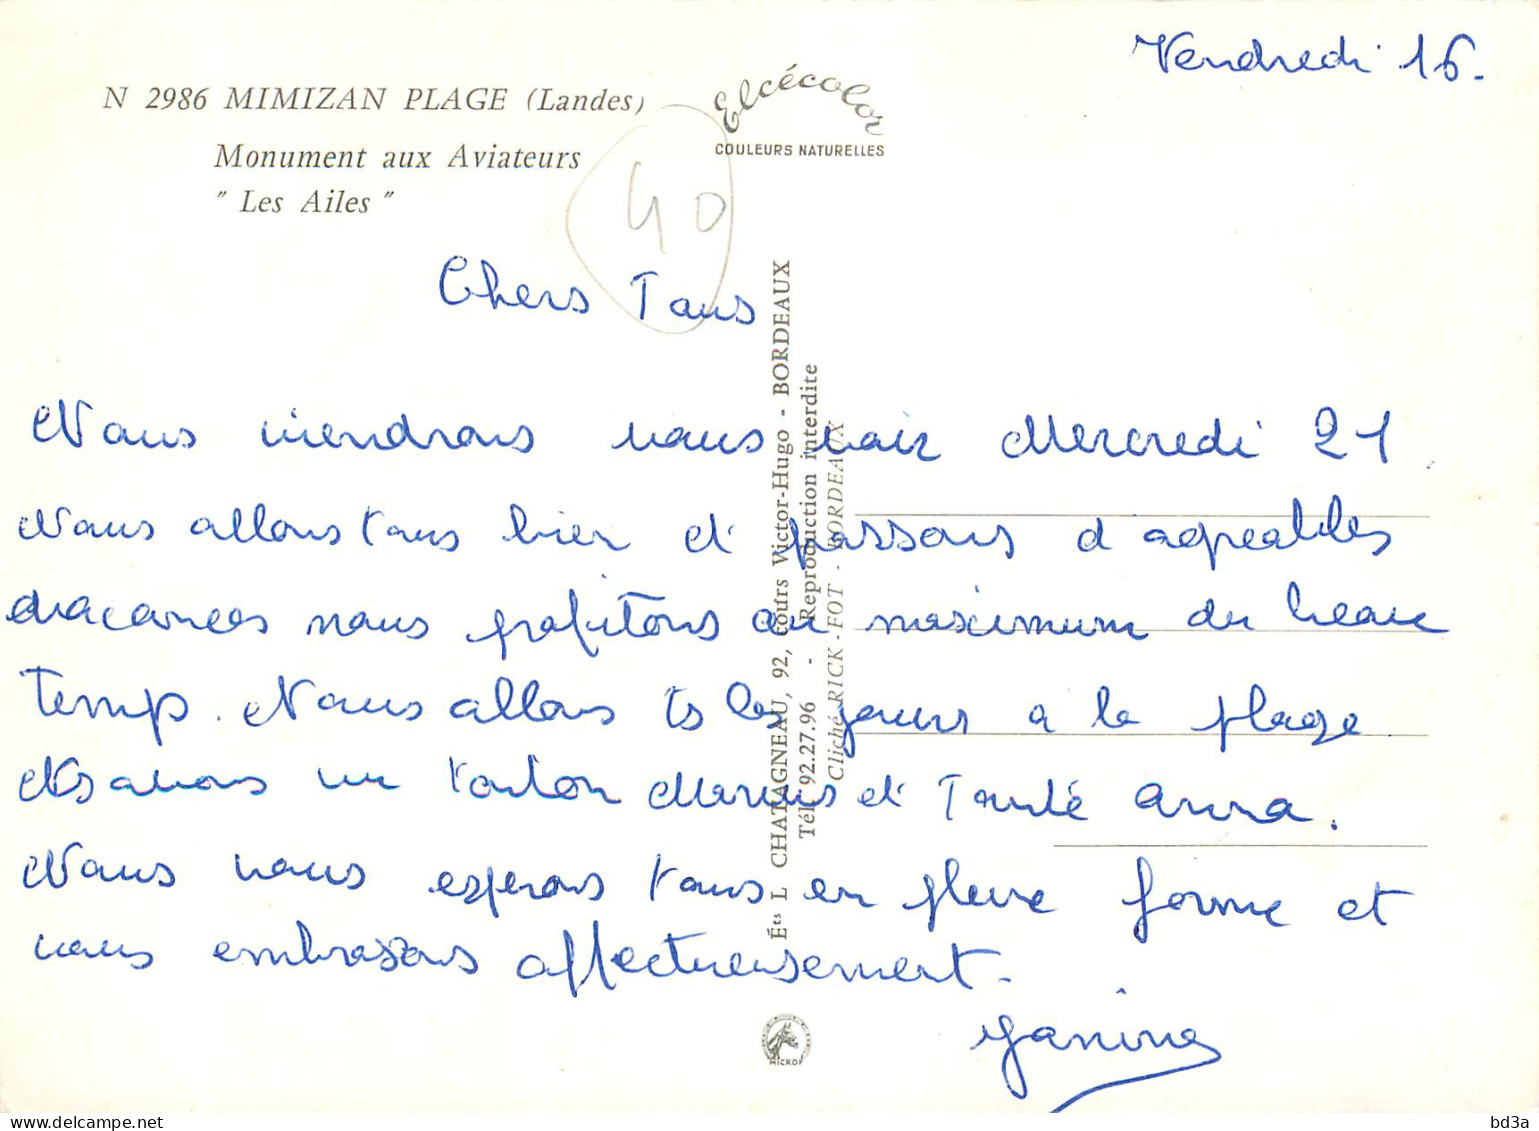 Vendredi 16.
N 2986 MIMIZAN PLAGE (Landes)
Monument aux Aviateurs
" Les Ailes "
Elcécolor
COULEURS NATURELLES
40
Chers Tous
Nous viendrons vous voir Mercredi 21
Nous allons tous bien et passons d agreables
vacances nous profitons au maximum du beau
temp. Nous allons ts les jours a la plage
Ns avons vu tonton Marius et Tante Anna.
Nous vous esperons tous en pleine forme et
vous embrassons affectueusement.
Janine
Éts L CHATAGNEAU, 92, cours Victor-Hugo - BORDEAUX
Tél. 92.27.96 - Reproduction interdite
Cliché RICK-FOT - BORDEAUX
MICRO
delcampe.net
bd3a